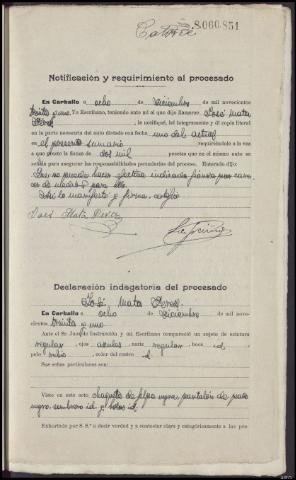 Catorce 8.060.851
Notificación y requirimiento al procesado
En Carballo a ocho de Diciembre de mil novecientos
treinta y uno, Yo Escribano, teniendo ante mí al que dijo llamarse José Mata
Perez, le notifiqué, leí íntegramente y dí copia literal
en la parte necesaria del auto dictado con fecha uno del actual
en el presente sumario requiriéndole a la vez
a que preste la fianza de dos mil pesetas que en el mismo auto se
señala para asegurar las responsabilidades pecuniarias del proceso. Enterado dijo
que no puede hacer efectiva indicada fianza por care-
cer de medios para ello.
Así lo manifestó y firma, certifico
José Mata Perez
Declaración indagatoria del procesado
José Mata Perez
En Carballo a ocho de Diciembre de mil nove-
cientos treinta y uno
Ante el Sr. Juez de Instrucción y mi Escribano compareció un sujeto de estatura
regular, ojos azules, nariz regular, boca id,
pelo rubio, color del rostro
Sus señas particulares son:
Viste en este acto chaqueta de felpa negra, pantalón de pana
negro, sombrero id y botas id.
Exhortado por S. S.ª a decir verdad y a contestar clara y categóricamente a las pre-